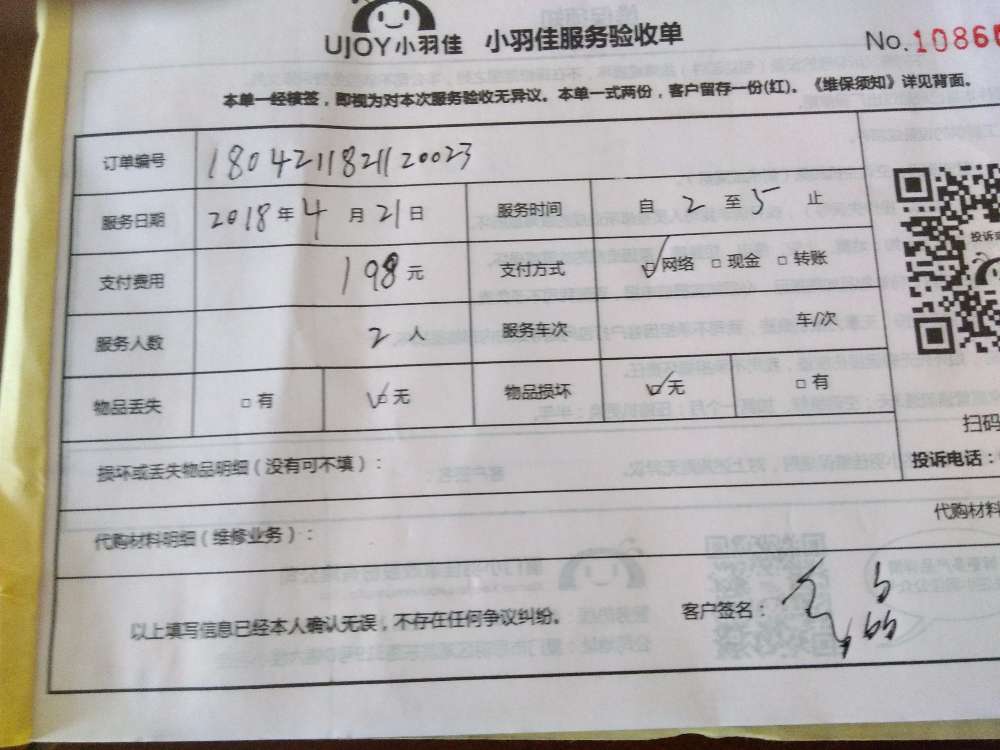 UJOY小羽佳 小羽佳服务验收单 No.10860
本单一经核签，即视为对本次服务验收无异议。本单一式两份，客户留存一份(红)。《维保须知》详见背面。
订单编号 1804211821120023
服务日期 2018年4月21日 服务时间 自2至5止
支付费用 198元 支付方式 网络 现金 转账
服务人数 2人 服务车次 车/次
物品丢失 有 无 物品损坏 无 有
扫码
损坏或丢失物品明细（没有可不填）： 投诉电话：
代购材料明细（维修业务）： 代购材料
以上填写信息已经本人确认无误，不存在任何争议纠纷。 客户签名：